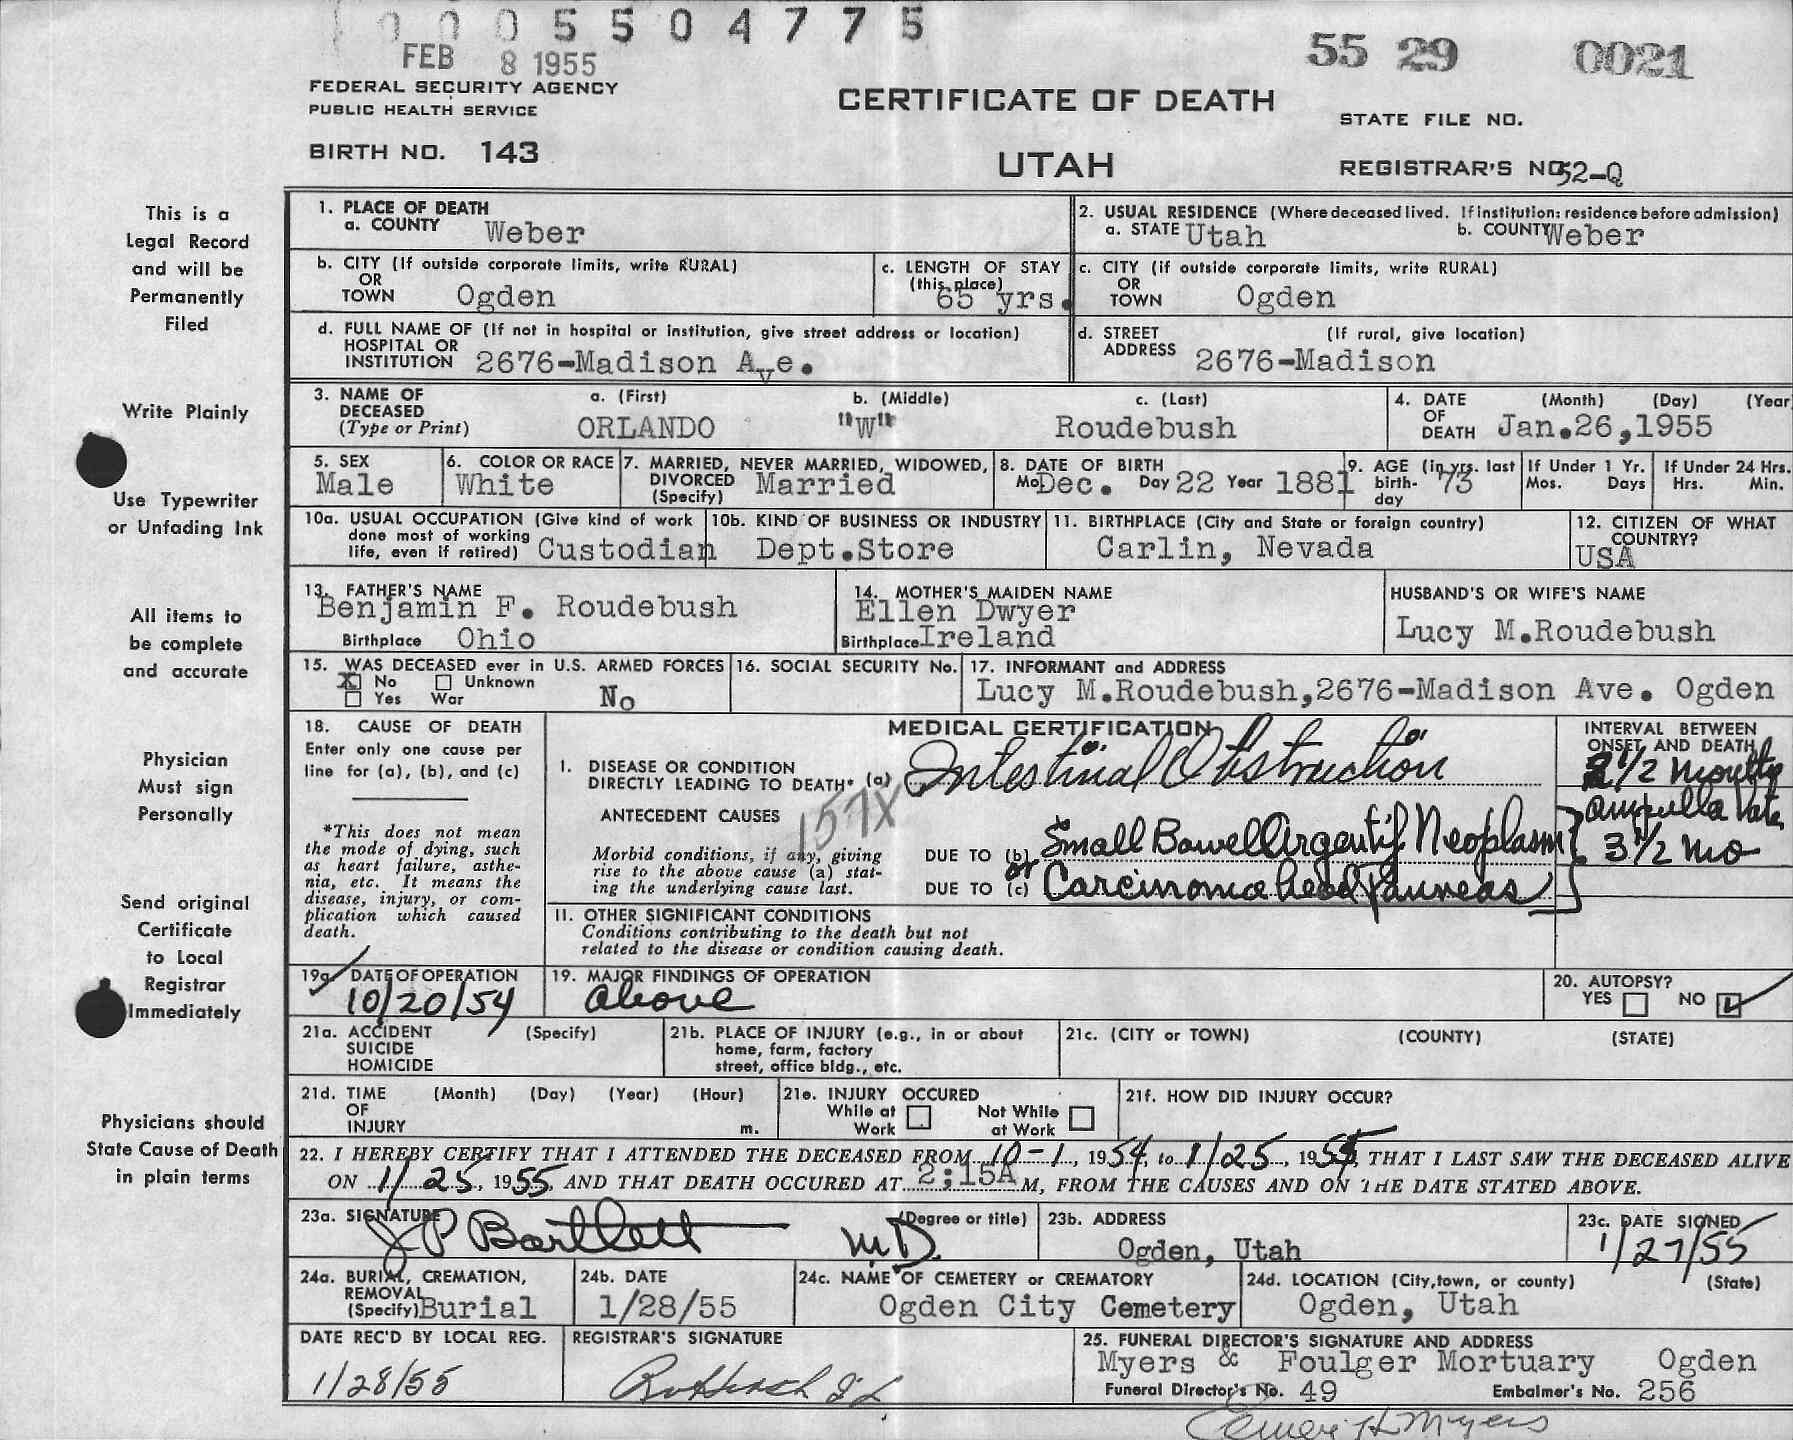 0005504775
FEB 8 1955
55 29 0021
FEDERAL SECURITY AGENCY
PUBLIC HEALTH SERVICE
CERTIFICATE OF DEATH
STATE FILE NO.
BIRTH NO. 143
UTAH
REGISTRAR'S NO. 52-Q
This is a
Legal Record
and will be
Permanently
Filed
Write Plainly
Use Typewriter
or Unfading Ink
All items to
be complete
and accurate
Physician
Must sign
Personally
Send original
Certificate
to Local
Registrar
Immediately
Physicians should
State Cause of Death
in plain terms
1. PLACE OF DEATH
a. COUNTY Weber
2. USUAL RESIDENCE (Where deceased lived. If institution: residence before admission)
a. STATE Utah b. COUNTY Weber
b. CITY (If outside corporate limits, write RURAL)
OR
TOWN Ogden
c. LENGTH OF STAY
(this place)
65 yrs.
c. CITY (if outside corporate limits, write RURAL)
OR
TOWN Ogden
d. FULL NAME OF (If not in hospital or institution, give street address or location)
HOSPITAL OR
INSTITUTION 2676-Madison Ave.
d. STREET (If rural, give location)
ADDRESS 2676-Madison
3. NAME OF
DECEASED
(Type or Print)
a. (First) b. (Middle) c. (Last)
ORLANDO "W" Roudebush
4. DATE (Month) (Day) (Year
OF
DEATH Jan.26,1955
5. SEX
Male
6. COLOR OR RACE
White
7. MARRIED, NEVER MARRIED, WIDOWED,
DIVORCED
(Specify) Married
8. DATE OF BIRTH
Mo Dec. Day 22 Year 1881
9. AGE (in yrs. last
birth-
day 73
If Under 1 Yr.
Mos. Days
If Under 24 Hrs.
Hrs. Min.
10a. USUAL OCCUPATION (Give kind of work
done most of working
life, even if retired) Custodian
10b. KIND OF BUSINESS OR INDUSTRY
Dept.Store
11. BIRTHPLACE (City and State or foreign country)
Carlin, Nevada
12. CITIZEN OF WHAT
COUNTRY?
USA
13. FATHER'S NAME
Benjamin F. Roudebush
Birthplace Ohio
14. MOTHER'S MAIDEN NAME
Ellen Dwyer
Birthplace Ireland
HUSBAND'S OR WIFE'S NAME
Lucy M.Roudebush
15. WAS DECEASED ever in U.S. ARMED FORCES
X No Unknown
Yes War No
16. SOCIAL SECURITY No.
17. INFORMANT and ADDRESS
Lucy M.Roudebush,2676-Madison Ave. Ogden
18. CAUSE OF DEATH
Enter only one cause per
line for (a), (b), and (c)
*This does not mean
the mode of dying, such
as heart failure, asthe-
nia, etc. It means the
disease, injury, or com-
plication which caused
death.
MEDICAL CERTIFICATION
I. DISEASE OR CONDITION
DIRECTLY LEADING TO DEATH* (a) Intestinal Obstruction
157X
ANTECEDENT CAUSES
Morbid conditions, if any, giving
rise to the above cause (a) stat-
ing the underlying cause last.
DUE TO (b) Small Bowel Argentif Neoplasm
or
DUE TO (c) Carcinoma head Pancreas
INTERVAL BETWEEN
ONSET AND DEATH
1/2 months
ampulla Vate
3 1/2 mo
II. OTHER SIGNIFICANT CONDITIONS
Conditions contributing to the death but not
related to the disease or condition causing death.
19a. DATE OF OPERATION
10/20/54
19. MAJOR FINDINGS OF OPERATION
above
20. AUTOPSY?
YES NO
21a. ACCIDENT (Specify)
SUICIDE
HOMICIDE
21b. PLACE OF INJURY (e.g., in or about
home, farm, factory
street, office bldg., etc.
21c. (CITY or TOWN) (COUNTY) (STATE)
21d. TIME (Month) (Day) (Year) (Hour)
OF
INJURY m.
21e. INJURY OCCURED
While at Work Not While at Work
21f. HOW DID INJURY OCCUR?
22. I HEREBY CERTIFY THAT I ATTENDED THE DECEASED FROM 10-1, 1954, to 1/25, 1955, THAT I LAST SAW THE DECEASED ALIVE
ON 1/25, 1955, AND THAT DEATH OCCURED AT 2:15A M, FROM THE CAUSES AND ON THE DATE STATED ABOVE.
23a. SIGNATURE (Degree or title)
J P Bartlett M.D.
23b. ADDRESS
Ogden, Utah
23c. DATE SIGNED
1/27/55
24a. BURIAL, CREMATION,
REMOVAL
(Specify) Burial
24b. DATE
1/28/55
24c. NAME OF CEMETERY or CREMATORY
Ogden City Cemetery
24d. LOCATION (City,town, or county) (State)
Ogden, Utah
DATE REC'D BY LOCAL REG.
1/28/55
REGISTRAR'S SIGNATURE
25. FUNERAL DIRECTOR'S SIGNATURE AND ADDRESS
Myers & Foulger Mortuary Ogden
Funeral Director's No. 49 Embalmer's No. 256
Myers